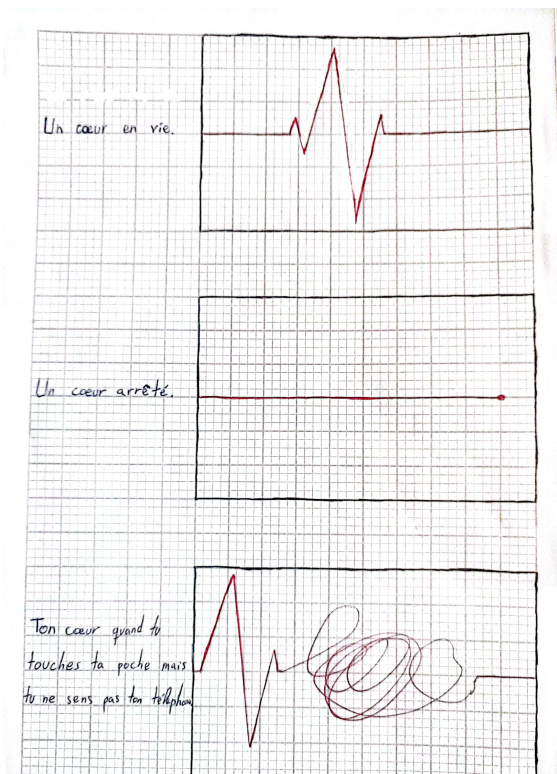 Un cœur en vie.
Un cœur arrêté.
Ton cœur quand tu
touches ta poche mais
tu ne sens pas ton téléphone